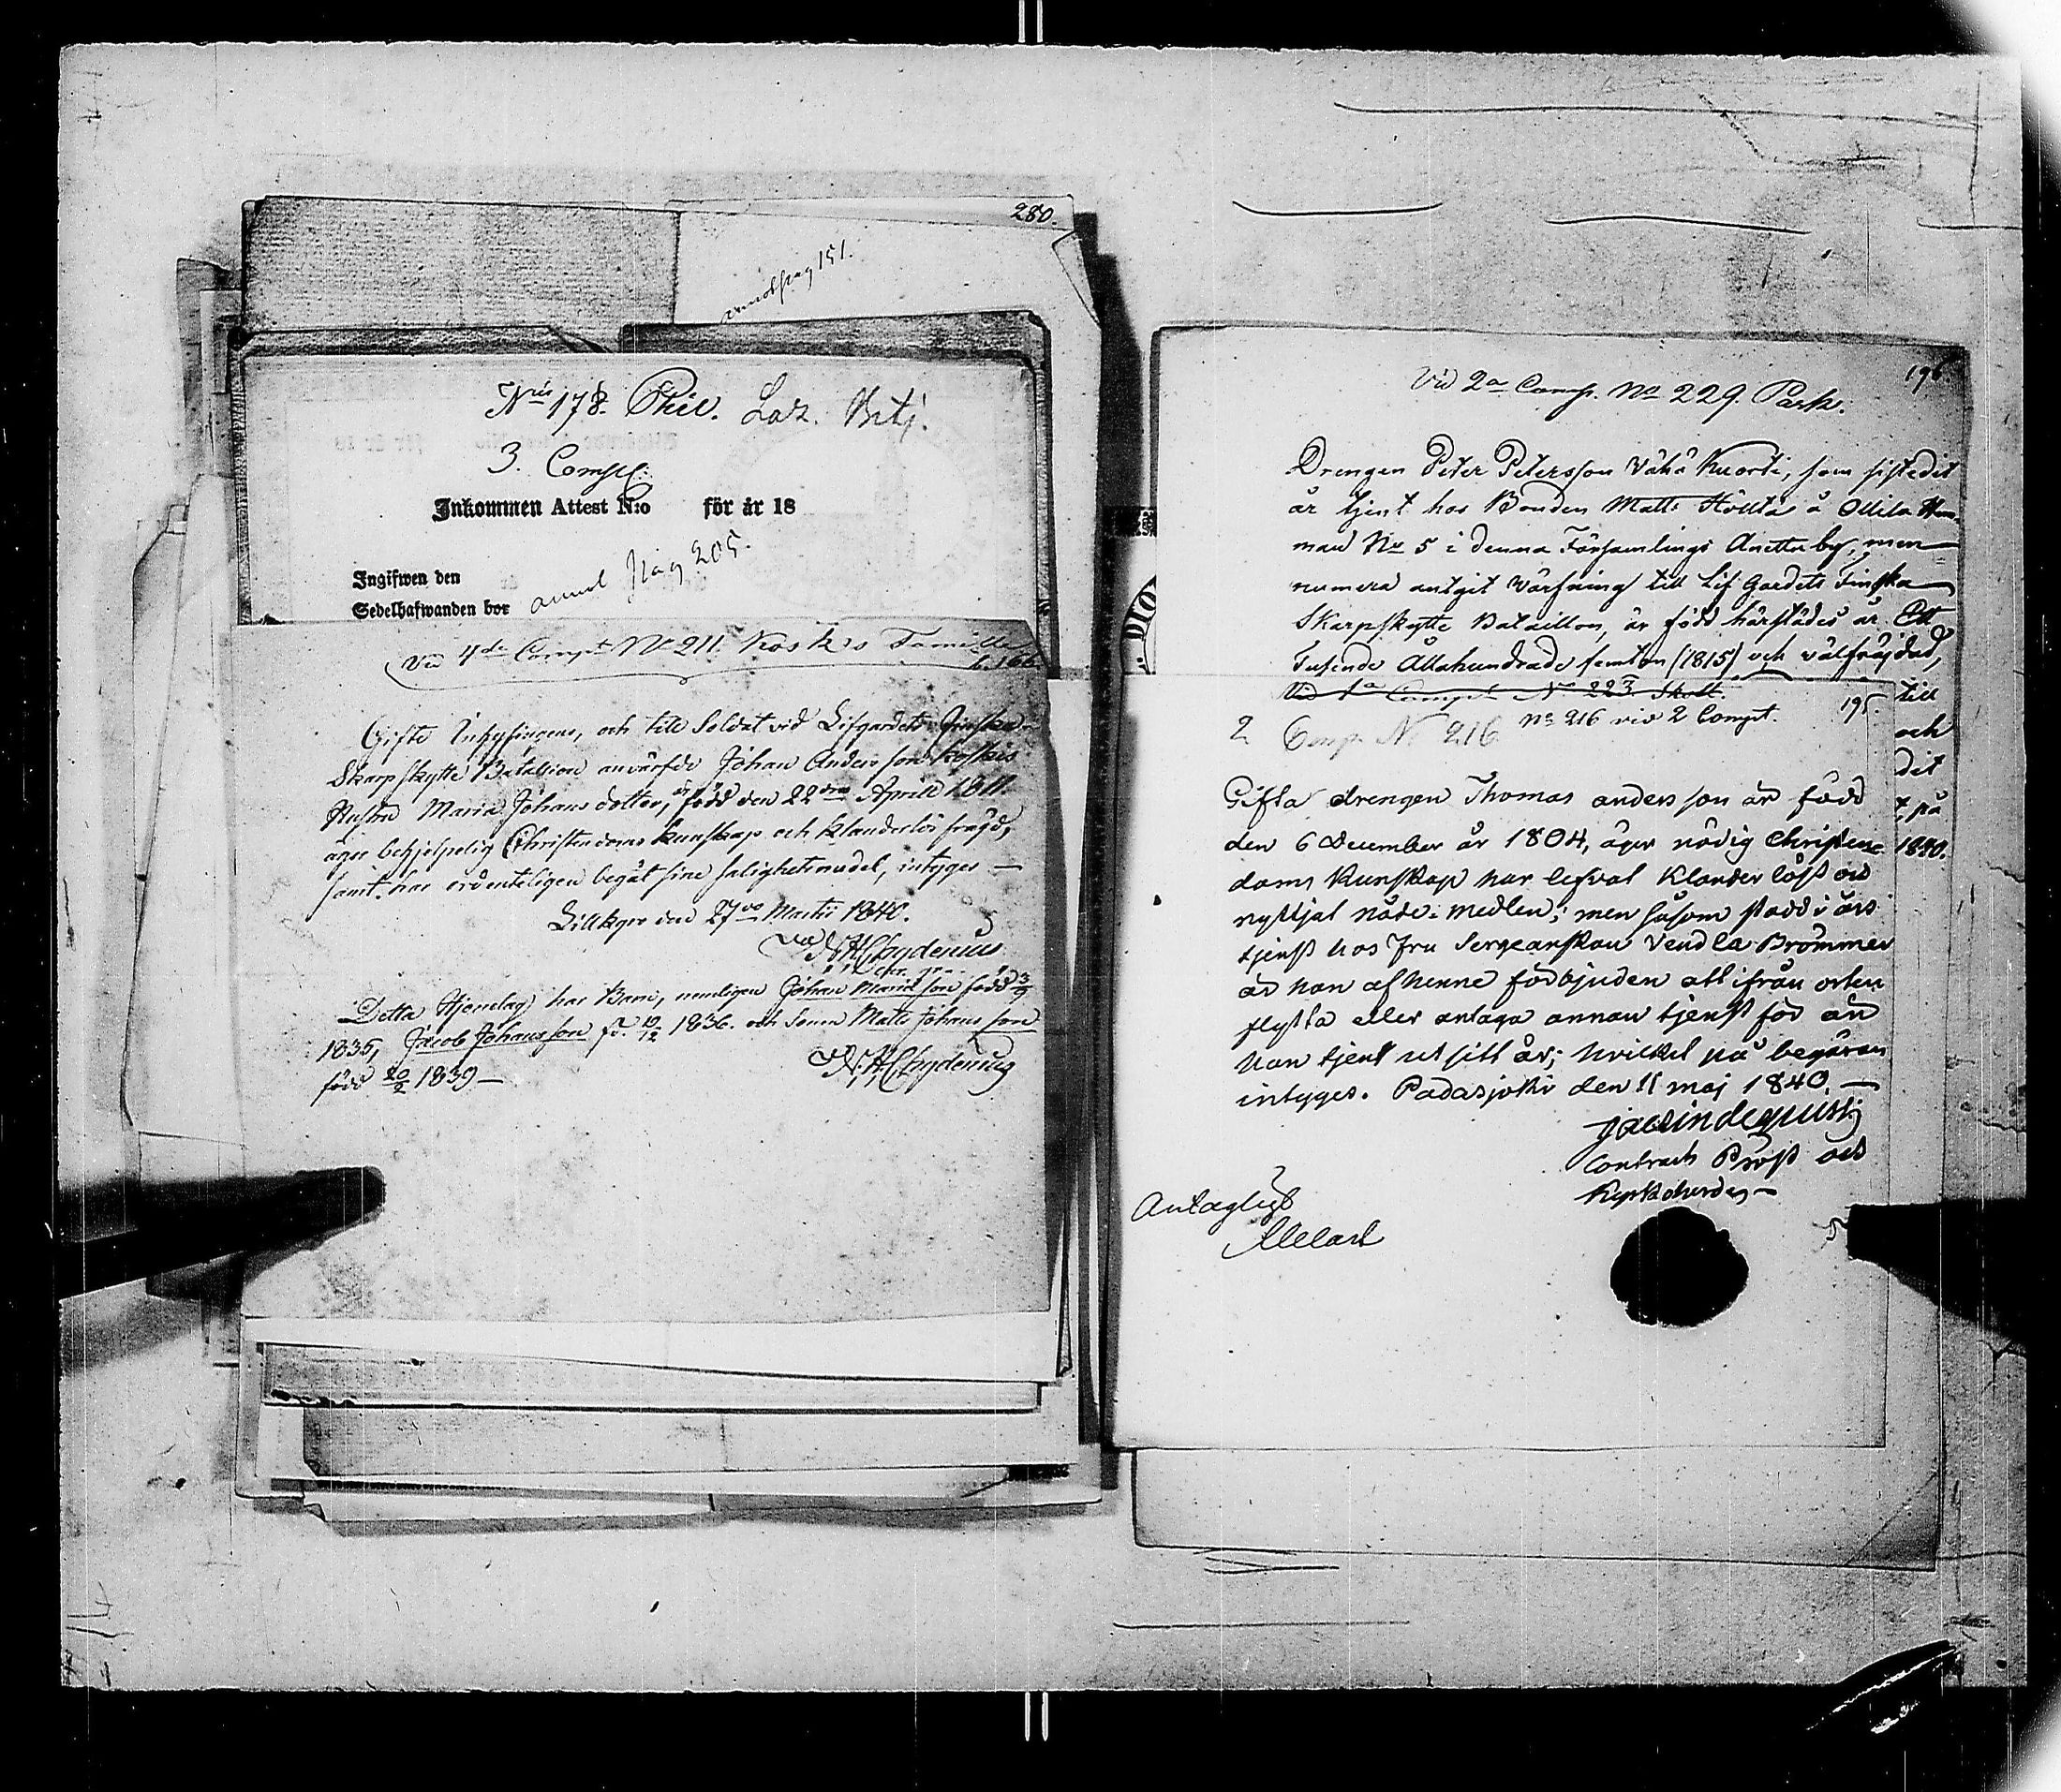 280.
annot pag 151.
Nris 178. Phil. Laz. Betj.
3. Comp:
Inkommen Attest N:o för år 18
Ingifwen den
annot pag 205.
Sedelhafwanden bor
Vid 4de Compt No 211. Kosk's Famille
Gifte Inhysingens, och till Soldat vid Lifgardets Finska
Skarpskytte Bataljon anvärfde Johan Andersson Koskis
Hustru Maria Johans dotter, är född den 22dra Aprill 1811.
äger behjelpelig Christendoms kunskap och klanderlös frägd,
samt har ordenteligen begåt sine salighetsmedel, intygas —
Lillkyro den 27de Martii 1840.
N. H. Chydenius
Detta Hjonelag har Barn, nemligen Johan Mariæ son född 3/9
1835, Jacob Johansson fö. 10/12 1836. och sonen Matts Johans son
född 20/2 1839 —
N. H. Chydenius
196.
Vid 2a Comp. No 229. Park.
Drengen Peter Petersson Vähä Kuorti, som sistedit
år tjent hos Bonden Matts Höllta å Ollila Hem-
man No 5 i denna Församlings Anettu by, men
numera antgit Värfning till Lif Gardets Finska
Skarpskytte Bataillon, är född härstädes år Ett
Tusende Åttahundrade femton (1815) och välfräjdad,
till
Vid 1a Compt No 223 Skott.
195.
2 Comp. No 216. No 216 vid 2 Compt.
och
dit
Gifta drengen Thomas anders son är född
, på
den 6 December år 1804, äger nödig Christen=
1840.
doms kunskap har lefvat klander löst och
nyttjat nåde-medlen; men såsom stadd i års
tjenst hos Fru Sergeanskan Vendla Brommer
är han af henne förbjuden att ifrån orten
flytta eller antaga annan tjenst för än
han tjent ut sitt år; hvilket på begäran
intyges. Padasjoki den 11 maj 1840. —
Contracts Prost och
Kyrkoherde, —
Antagligt